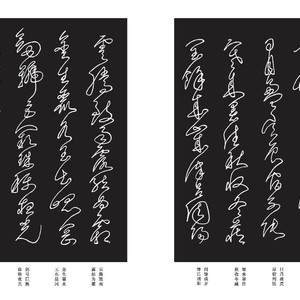 日月盈昃辰宿列張
寒來暑往秋收冬藏
閏餘成歲律呂調陽
日月盈昃
辰宿列张
寒来暑往
秋收冬藏
闰余成岁
律吕调阳
雲騰致雨露結為霜
金生麗水玉出崑岡
劍號巨闕珠稱夜光
云腾致雨
露结为霜
金生丽水
玉出昆冈
剑号巨阙
珠称夜光